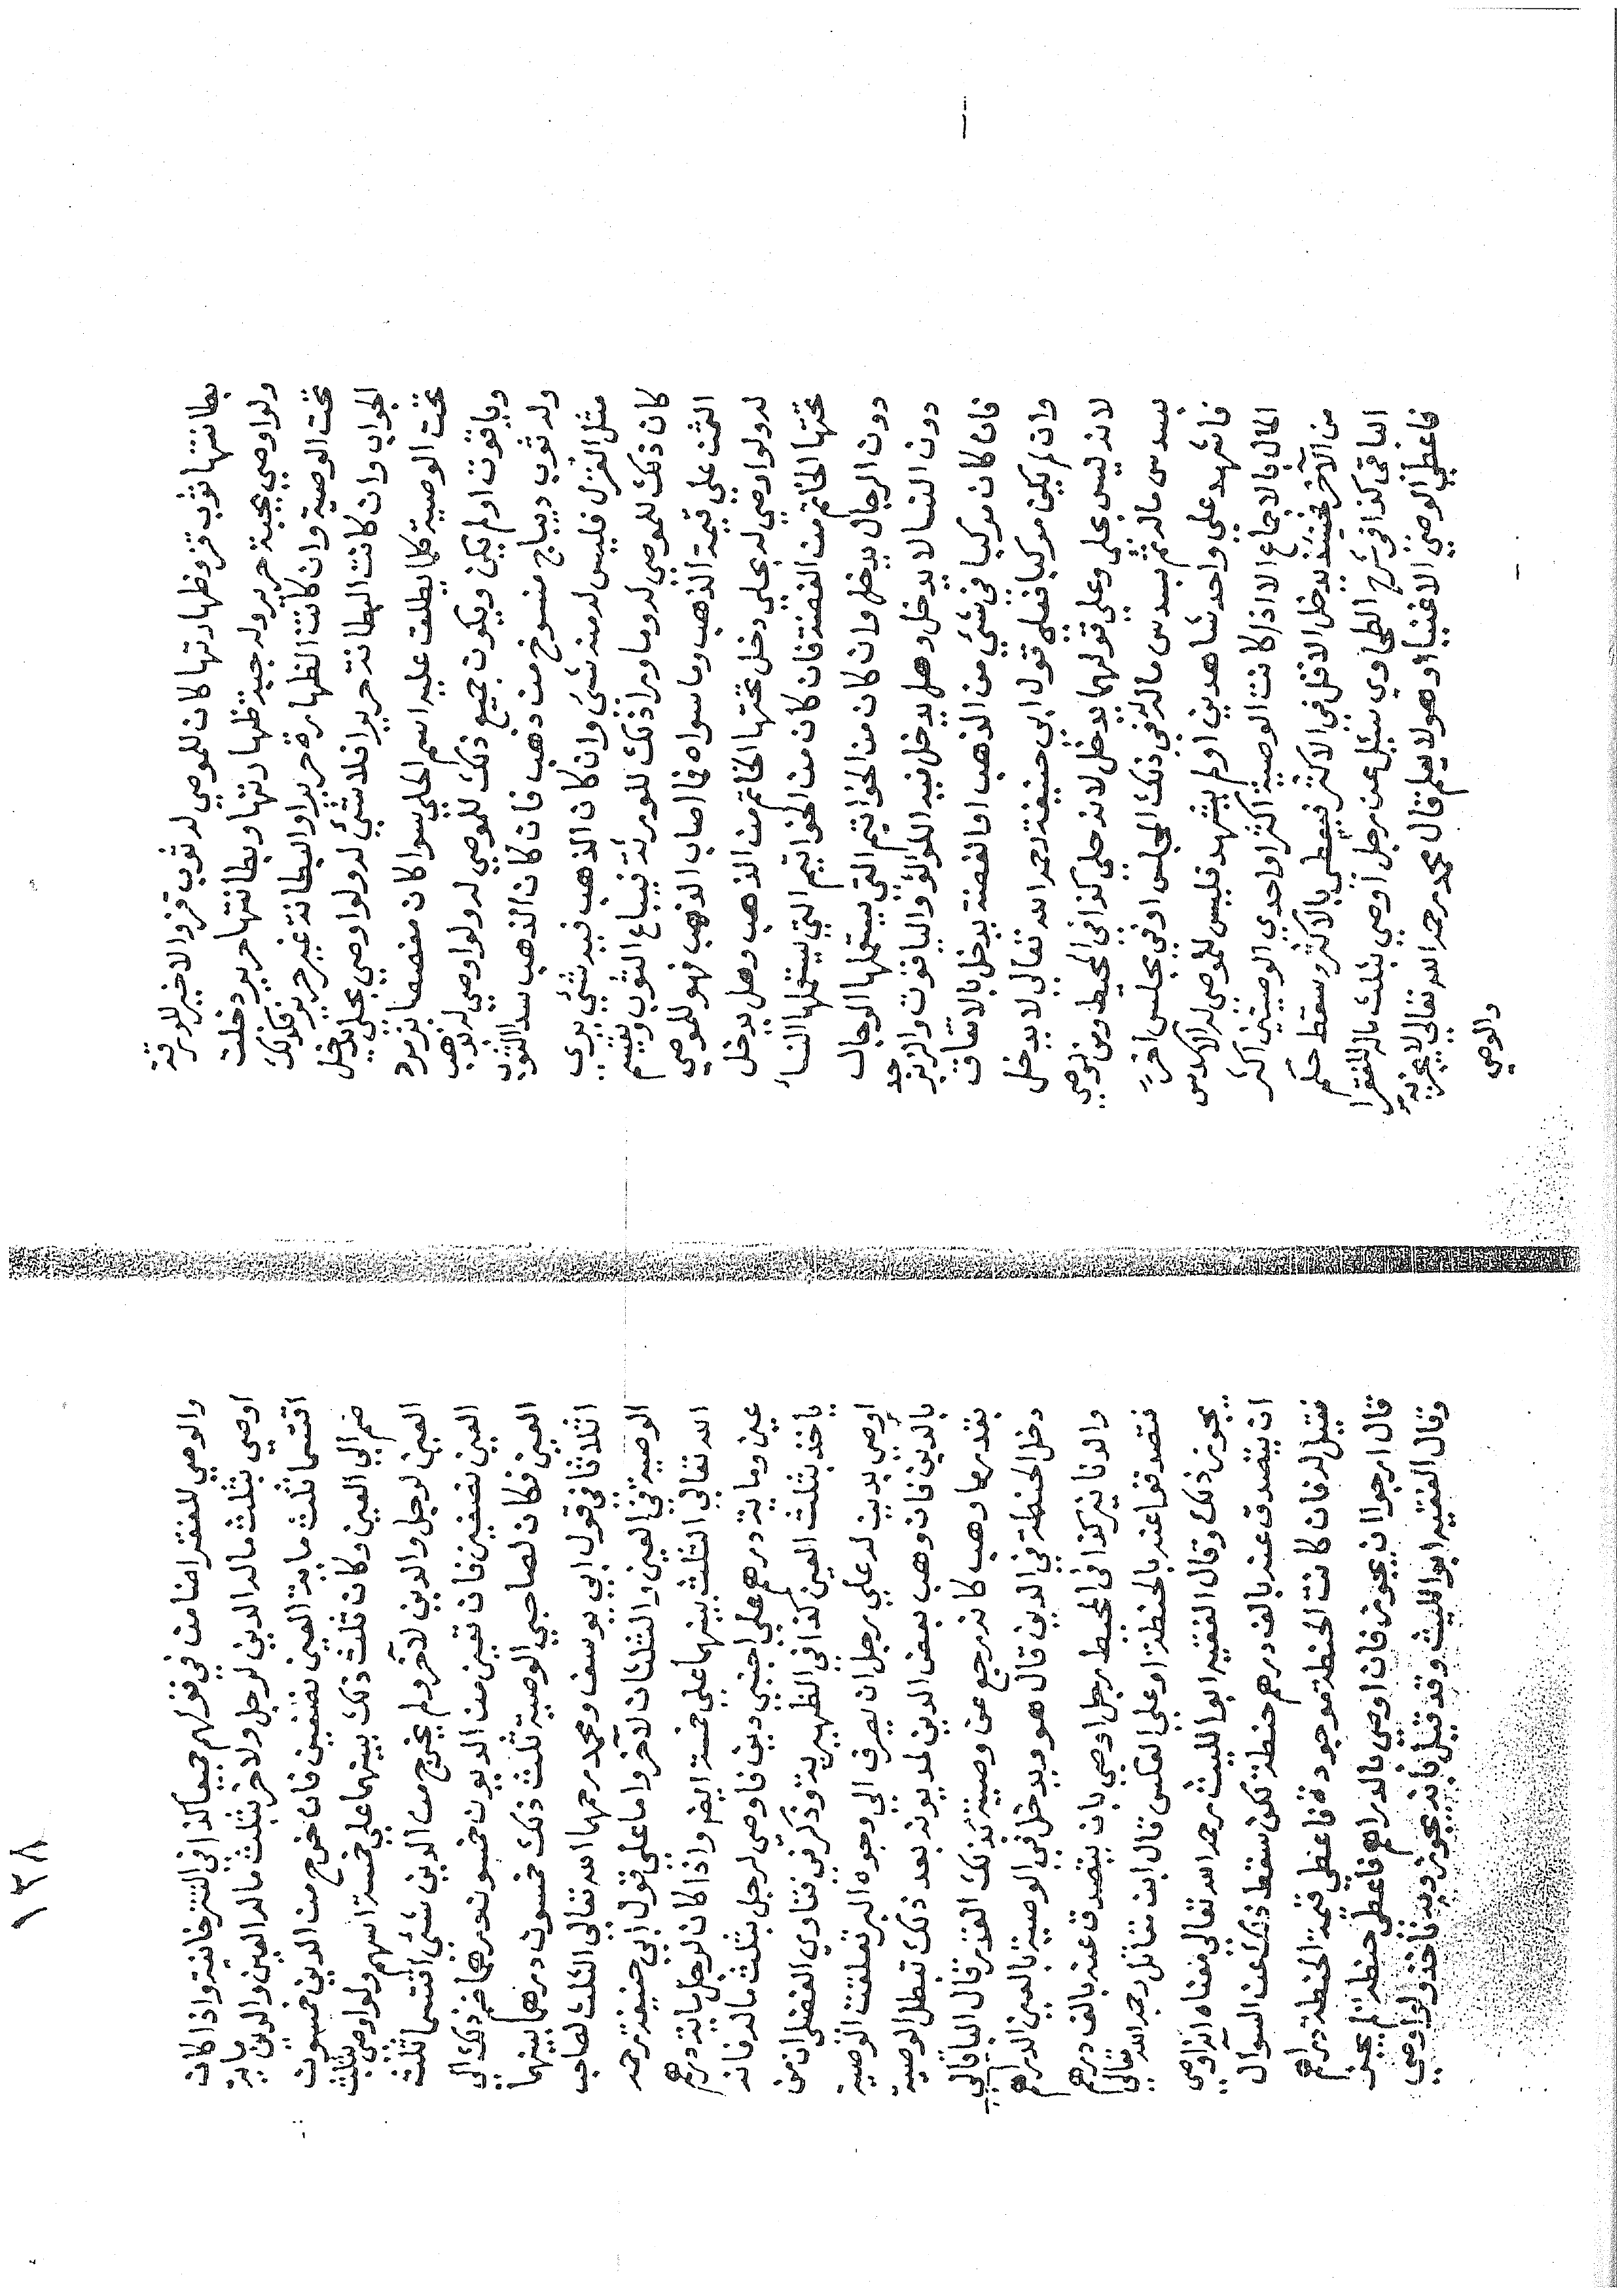 بطانتها ثوب قز وظهارتها كان للموصي له ثوب قز والاخير للورثة
ولو اوصي بجبة حرير وله جبة ظهارتها وبطانتها حرير دخلت
تحت الوصية وان كانت الظهارة حريرا والبطانة غير حرير فكذلك
الجواب وان كانت البطانة حريرا فلا شئ له ولو اوصي بحلي يدخل
تحت الوصية كلما يطلق عليه اسم الحلي سوا كان مفصصا بزمرد
وياقوت او لم يكن ويكون جميع ذلك للموصي له ولو اوصي له بذهب
وله ثوب ديباج منسوخ من ذهب فان كان الذهب سدا الثوب
مثل الغزل فليس له منه شئ وان كان الذهب فيه شئ يري
كان ذلك للموصي له وما ورا ذلك للورثة فيباع الثوب ويقسم
الثمن علي قيمة الذهب وما سواه فما اصاب الذهب فهو للموصي
له ولو اوصي له بحلي دخل تحتها الخاتم من الذهب وهل يدخل
تحتها الخاتم من الفضة فان كان من الخواتيم التي يستعملها النسا
دون الرجال يدخل وان كان من الخواتيم التي يستعملها الرجال
دون النسا لا يدخل وهل يدخل فيه اللؤلؤ والياقوت والزبرجد
فان كان مركبا في شئ من الذهب او الفضة يدخل بالاتفاق
وان لم يكن مركبا فعلي قول ابي حنيفة رحمه الله تعالي لا يدخل
لانه ليس بحلي وعلي قولهما يدخل لانه حلي كذا في المحيط ومن اوصي
بسدس ماله ثم بسدس ماله في ذلك المجلس او في مجلس اخر
فاشهد علي واحد شاهدين او لم يشهد فليس للموصي له الا سدس
المال بالاجماع الا اذا كانت الوصية اكثر او احدي الوصيتين اكثر
من الآخر فحينئذ يدخل الاقل في الاكثر فيعطي بالاكثر وسقط حكم
الباقي كذا في شرح الطحاوي سئل عن رجل اوصي بثلث ماله للفقرا
فاعطي الوصي الاغنيا وهو لا يعلم قال محمد رحمه الله تعالي لا يجزيه
والوصي
١٣٨
والوصي للفقرا ضامن في قولهم جميعا كذا في التترخانية واذا كان
اوصي بثلث ماله الدين لرجل ولاخر بثلث ماله العين والدين ماية
اقتسما ثلث ماية العين نصفين فان خرج من الدين خمسون
ضم الي العين وكان ثلث ذلك بينهما علي خمسة اسهم ولو اوصي بثلث
العين لرجل والدين لآخر ولم يخرج من الدين شئ اقتسما ثلث
العين نصفين فان تعين من الديون خمسون درهما ضم ذلك الي
العين فكان لصاحبي الوصية ثلث ذلك خمسون درهما بينهما
اثلاثا في قول ابي يوسف ومحمد رحمهما الله تعالي الثلث لصاحب
الوصية في العين والثلثان لآخر واما علي قول ابي حنيفة رحمه
الله تعالي الثلث بينهما علي خمسة ايضم واذا كان لرجل ماية درهم
عين وماية درهم علي اجنبي دين فاوصي لرجل بثلث ماله فانه
ياخذ بثلث العين كذا في الظهيرية وذكر في فتاوي الفضلي ان من
اوصي بدين له علي رجل ان يصرف الي وجوه البر تعلقت الوصية
بالدين فان وهب بعض الدين لمديونه بعد ذلك تبطل الوصية
بقدر ما وهب كانه رجع عن وصيته بذلك القدر قال البقالي
دخل الحنطة في الدين قال هو ويدخل في الوصية بالعين الدراهم
والدنانير كذا في المحيط رجل اوصي بان يتصدق عنه بالف درهم
فتصدقوا عنه بالحنطة او علي العكس قال ابن مقاتل رحمه الله تعالي
يجوز ذلك وقال الفقيه ابو الليث رحمه الله تعالي معناه انه اوصي
ان يتصدق عنه بالف درهم حنطة لكن سقط ذلك عن السوال
فقيل له فان كانت الحنطة موجودة فاعطي قيمة الحنطة دراهم
قال ارجوا ان يجوز فان اوصي بالدراهم فاعطي حنطة لم يجز
وقال الفقيه ابو الليث وقد قيل بانه يجوز وبه ناخذ ولو اوصي